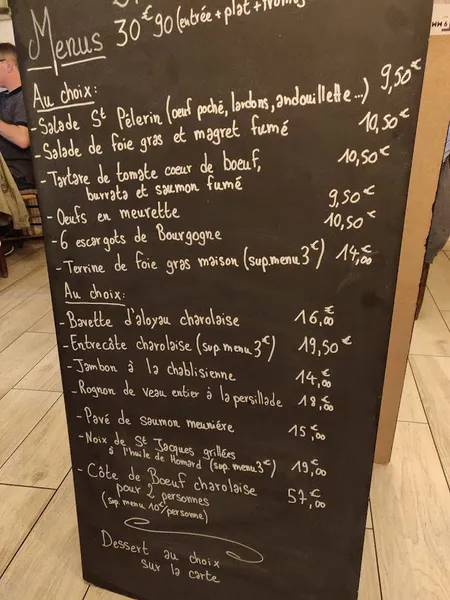 Menus 30€90 (entrée + plat +
Au choix:
- Salade St Pèlerin (oeuf poché, lardons, andouillette...) 9,50€
- Salade de foie gras et magret fumé 10,50€
- Tartare de tomate coeur de boeuf, 10,50€
burrata et saumon fumé
- Oeufs en meurette 9,50€
- 6 escargots de Bourgogne 10,50€
- Terrine de foie gras maison (sup. menu 3€) 14,00€
Au choix:
- Bavette d'aloyau charolaise 16,00€
- Entrecôte charolaise (sup. menu 3€) 19,50€
- Jambon à la chablisienne 14,00€
- Rognon de veau entier à la persillade 18,00€
- Pavé de saumon meunière 15,00€
- Noix de St Jacques grillées
à l'huile de Homard (sup. menu 3€) 19,00€
- Côte de Boeuf charolaise 57,00€
pour 2 personnes
(sup. menu 10€/personne)
Dessert au choix
sur la carte